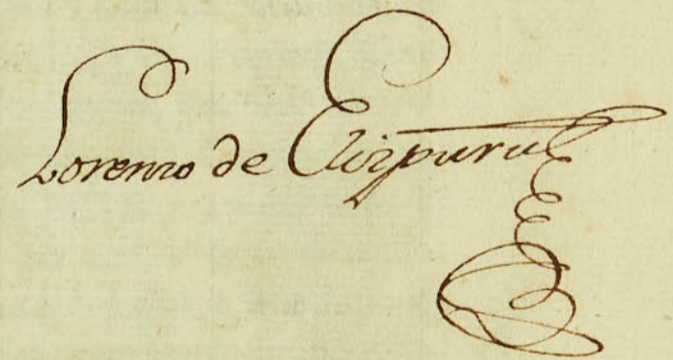 Lorenzo de Elizpuru